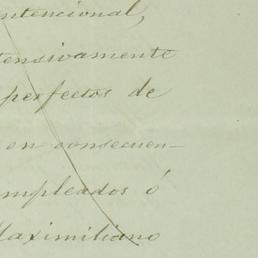 ntencional,
tensivamente
perfectos de
en consecuen-
mpleados ó
Maximiliano